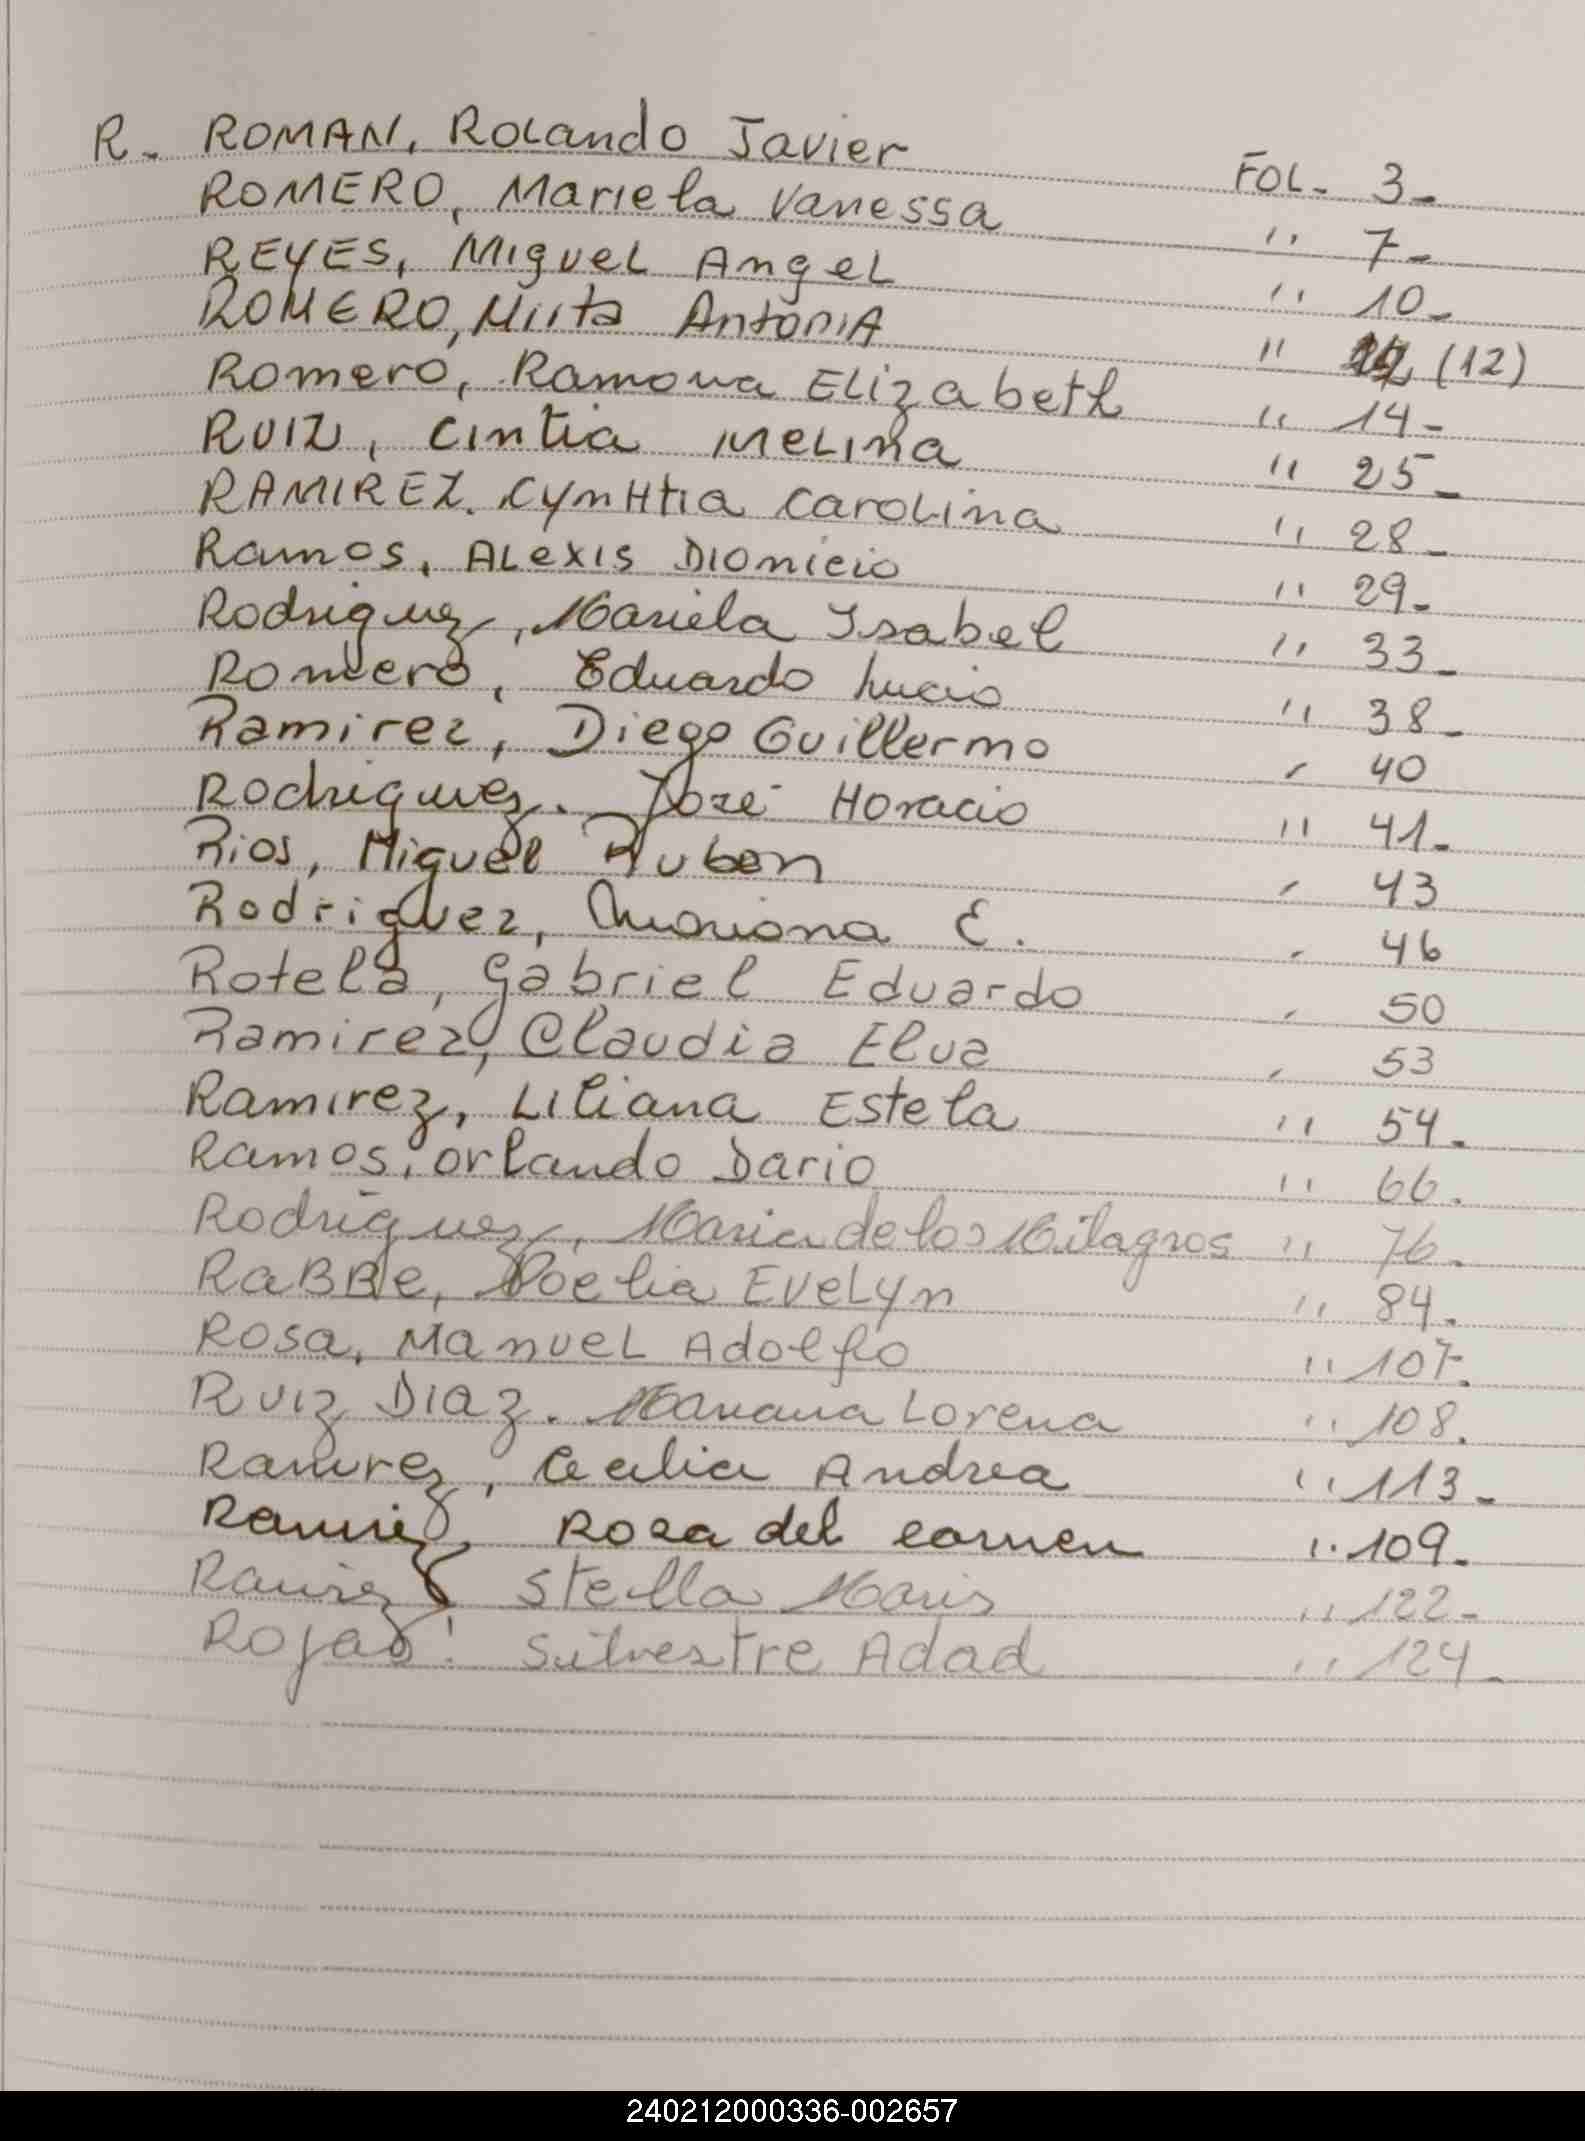 R. ROMAN, Rolando Javier FOL. 3.
ROMERO, Mariela Vanessa '' 7.
REYES, Miguel Angel '' 10.
ROMERO, Mirta Antonia '' (12)
Romero, Ramona Elizabeth '' 14.
RUIZ, Cintia Melina '' 25.
RAMIREZ. Cynthtia Carolina '' 28.
Ramos, Alexis Dionicio '' 29.
Rodriguez, Mariela Isabel '' 33.
Romero, Eduardo Lucio '' 38.
Ramirez, Diego Guillermo ' 40
Rodriguez. José Horacio '' 41.
Rios, Miguel Ruben ' 43
Rodriguez, Mariana E. ' 46
Rotela, Gabriel Eduardo ' 50
Ramirez, Claudia Elva ' 53
Ramirez, Liliana Estela '' 54.
Ramos, Orlando Dario '' 66.
Rodriguez, Maria de los Milagros '' 76.
Evelyn '' 84.
Rosa, Manuel Adolfo '' 107.
Ruiz Diaz. Mariana Lorena '' 108.
Ramirez, Cecilia Andrea '' 113.
Ramirez, Rosa del Carmen '' 109.
Ramirez, Stella Maris '' 122.
Rojas, Silvestre Adad '' 124.
240212000336-002657